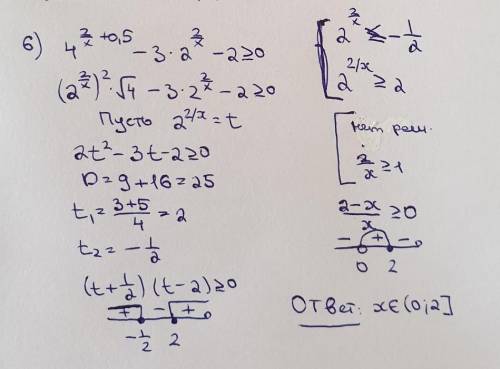 6) 4^(2/x + 0,5) - 3·2^(2/x) - 2 ≥ 0
(2^(2/x))^2 · √4 - 3·2^(2/x) - 2 ≥ 0
Пусть 2^(2/x) = t
2t² - 3t - 2 ≥ 0
D = 9 + 16 = 25
t₁ = (3+5)/4 = 2
t₂ = - 1/2
(t + 1/2) (t - 2) ≥ 0
+ - +
-1/2 2
2^(2/x) ≤ - 1/2
2^(2/x) ≥ 2
нет реш.
2/x ≥ 1
(2-x)/x ≥ 0
- + -
0 2
Ответ: x∈(0;2]